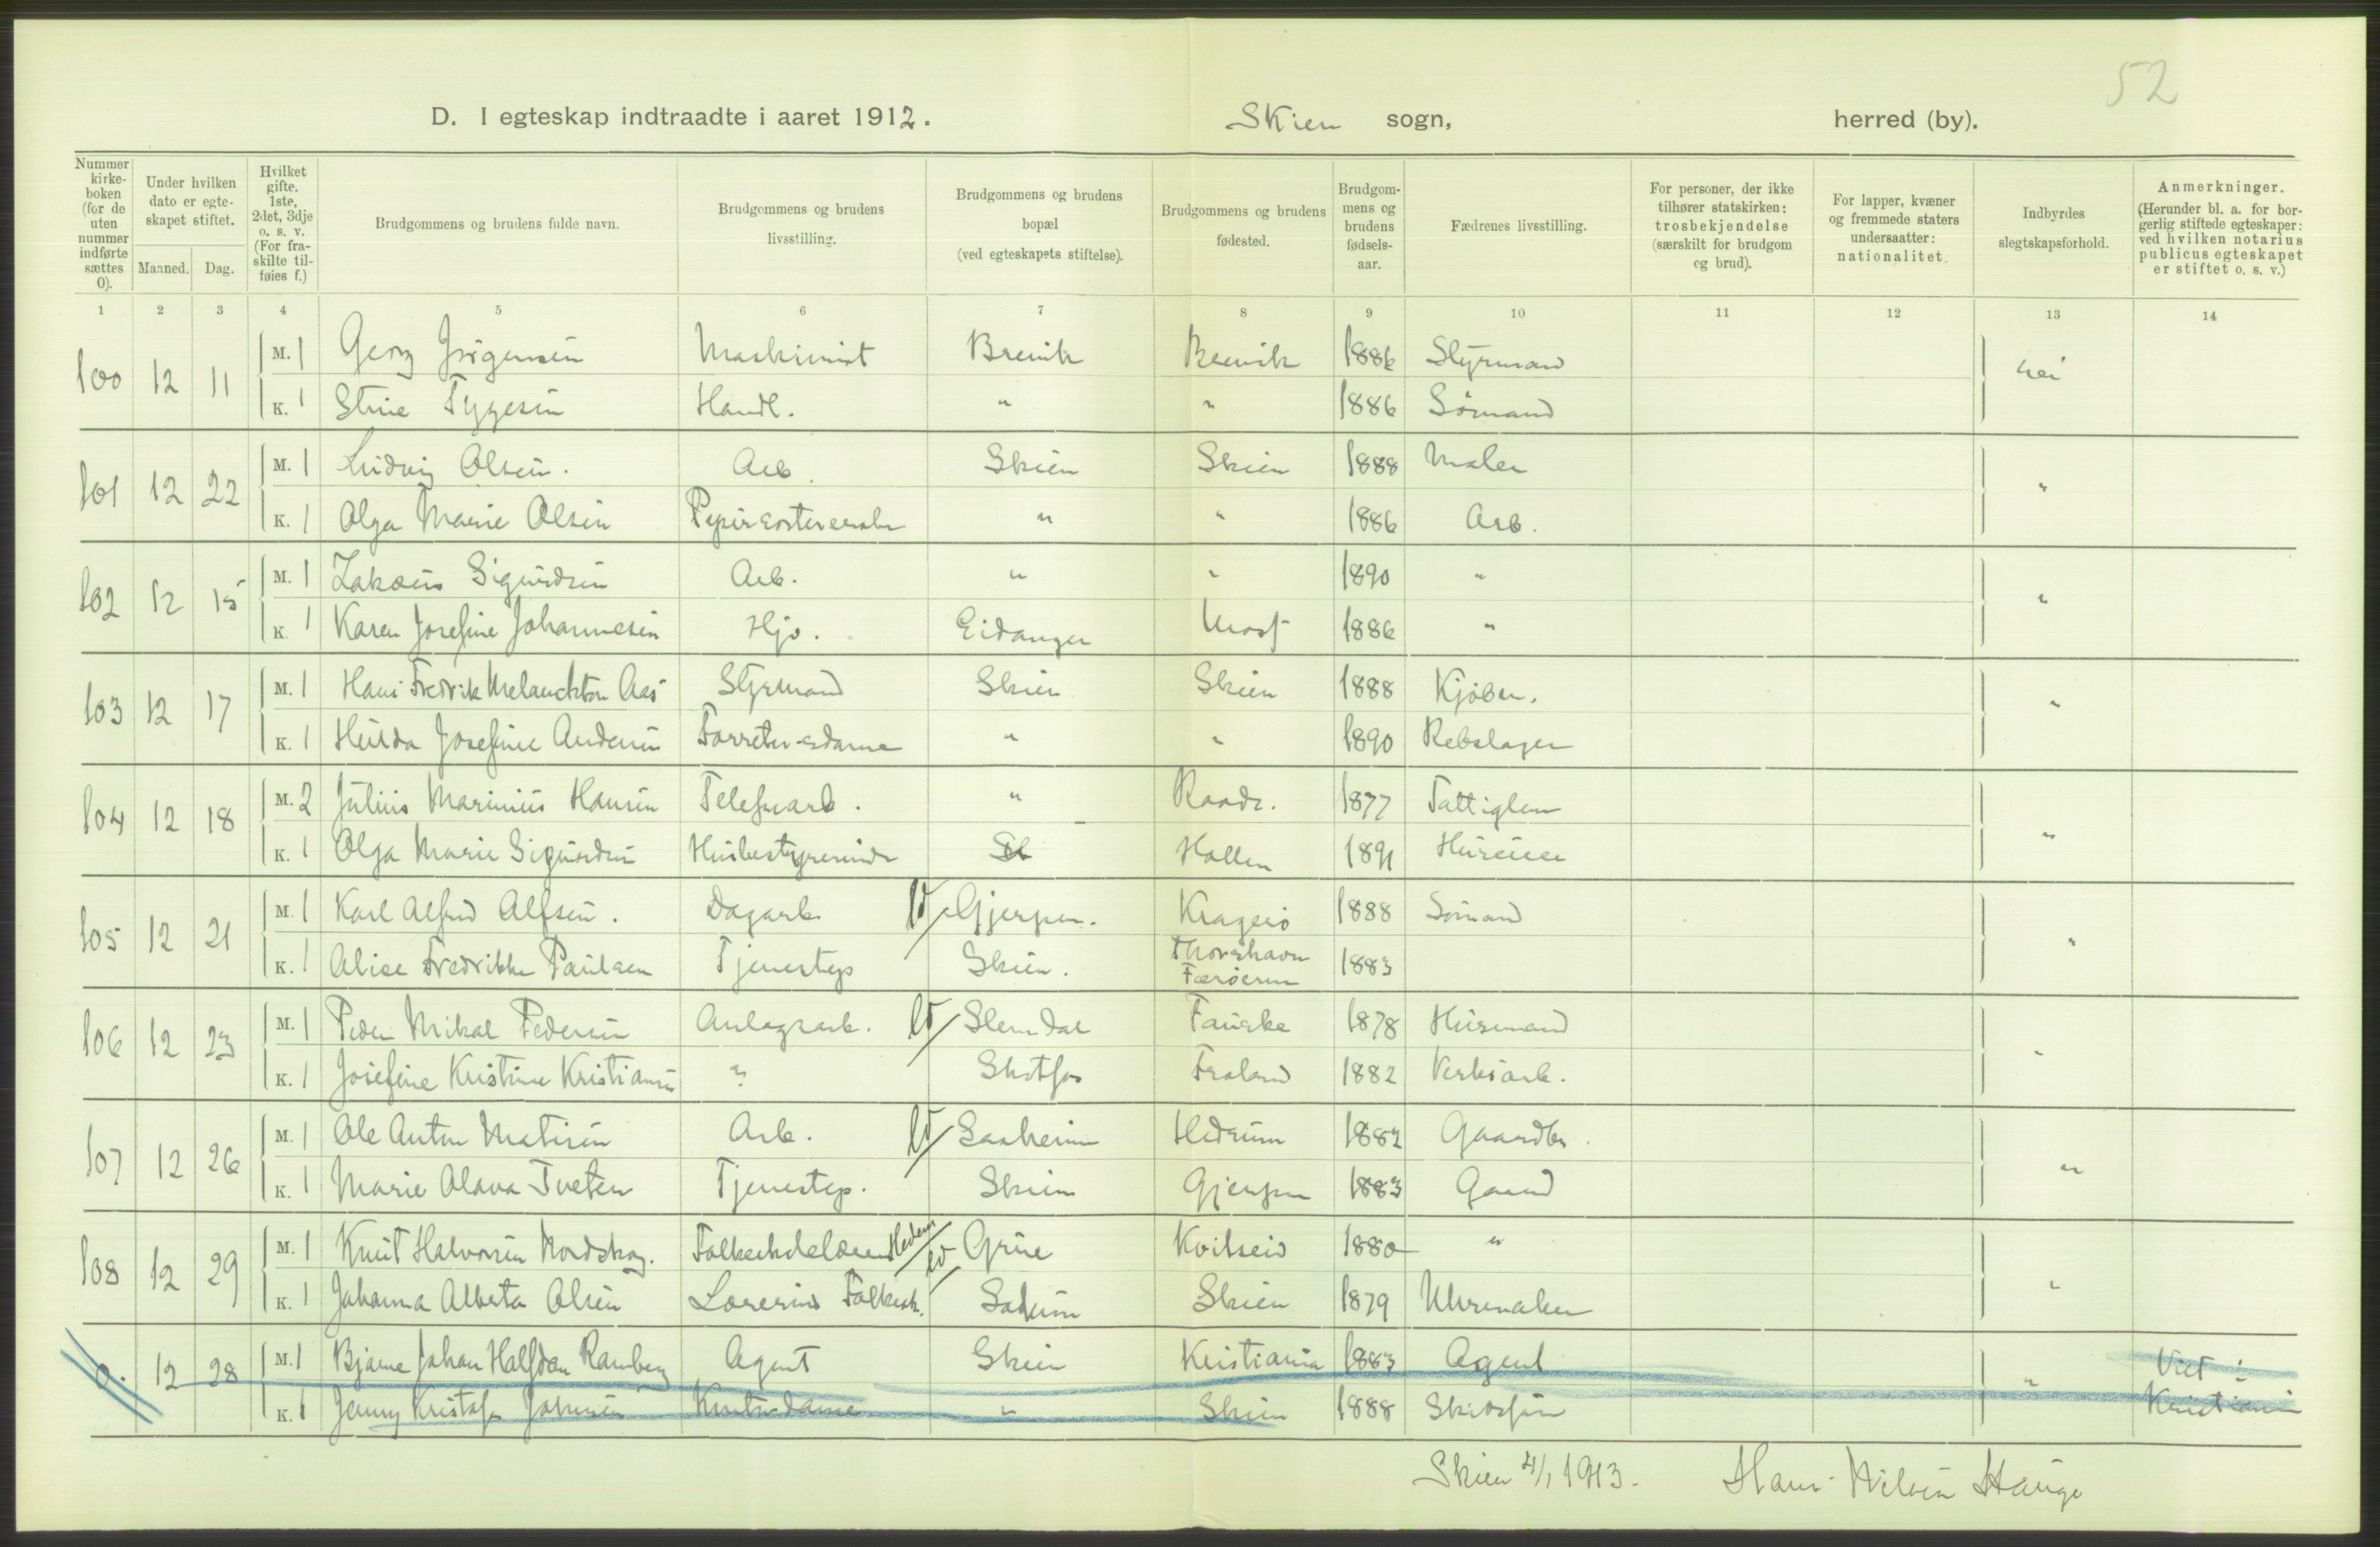 52
D. I egteskap indtraadte i aaret 1912. Skien sogn, herred (by).
Nummer kirke-boken (for de uten nummer indførte sættes 0).
Under hvilken dato er egte-skapet stiftet.
Maaned. Dag.
Hvilket gifte. 1ste, 2det, 3dje o. s. v. (For fra-skilte til-føies f.)
Brudgommens og brudens fulde navn.
Brudgommens og brudens livsstilling.
Brudgommens og brudens bopæl (ved egteskapets stiftelse).
Brudgommens og brudens fødested.
Brudgom-mens og brudens fødsels-aar.
Fædrenes livsstilling.
For personer, der ikke tilhører statskirken: trosbekjendelse (særskilt for brudgom og brud).
For lapper, kvæner og fremmede staters undersaatter: nationalitet.
Indbyrdes slegtskapsforhold.
Anmerkninger. (Herunder bl. a. for bor-gerlig stiftede egteskaper: ved hvilken notarius publicus egteskapet er stiftet o. s. v.)
1 2 3 4 5 6 7 8 9 10 11 12 13 14
100 12 11 M. 1 Georg Jørgensen Maskinist Brevik Brevik 1886 Styrmand nei
K. 1 Stine Tygesen Handl. " " 1886 Sømand
101 12 22 M. 1 Ludvig Olsen. Arb. Skien Skien 1888 Maler "
K. 1 Olga Marie Olsen " " 1886 Arb.
102 12 15 M. 1 Sigurdsen Arb. " " 1890 " "
K. 1 Karen Josefine Johannesen Hjv. Eidanger Moss 1886 "
103 12 17 M. 1 Hans Fredrik Melanckton Aas Styrmand Skien Skien 1888 Kjøbm. "
K. 1 Hulda Josefine Andersen Forretn-sdame " " 1890 Rebslager
104 12 18 M. 2 Julius Marinius Hansen Telefonarb. " Raade. 1877 Fattiglem "
K. 1 Olga Marie Sigurdsen Husbestyrerinde Hollen 1891 Huseier
105 12 21 M. 1 Karl Alfred Alfsen. Dagarb. Gjerpen. Kragerø 1888 Sømand "
K. 1 Alise Fredrikke Paulsen Tjenestep Skien. Thorshavn Færøerne 1883
106 12 23 M. 1 Peder Mikal Pedersen Anlægsarb. Slemdal Fauske 1878 Husmand "
K. 1 Josefine Kristine Kristiansen " Skotfos Froland 1882 Verksarb.
107 12 26 M. 1 Ole Anton Matisen Arb. Saaheim Hedrum 1882 Gaardbr. "
K. 1 Marie Olava Tveten Tjenestep. Skien Gjerpen 1883 Gaard
108 12 29 M. 1 Knut Halvorsen Nordskog. Folkeskolelærer Hedem Grue Kvitseid 1880 " "
K. 1 Johanna Alberta Olsen Lærerind Folkesk. Solum Skien 1879 Uhrmaker
0. 12 28 M. 1 Bjarne Johan Halfdan Ramberg Agent Skien Kristiania 1883 Agent " Viet i
K. 1 Jenny Kristofa Johnsen Kontordame " Skien 1888 Kristiania
Skien 4/1 1913. Hans Nilsen Hauge